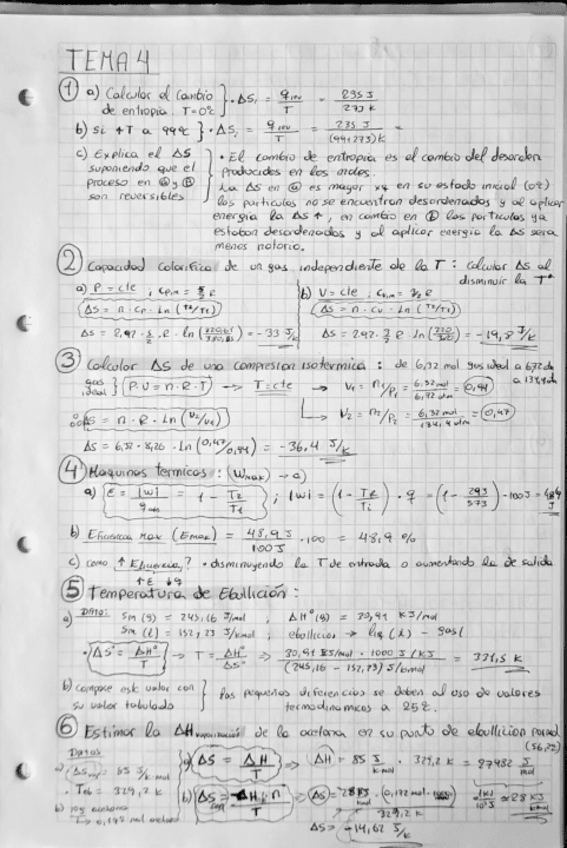 TEMA 4
① a) Calcular el cambio de entropia. T=0ºc } · ΔSᵢ = q rev / T = 235 J / 273 K
b) Si ↑T a 99ºc } · ΔSᵢ = q rev / T = 235 J / (99+273)K =
c) Explica el ΔS suponiendo que el proceso en ⓐ y ⓑ son reversibles } · El cambio de entropia es el cambio del desorden
producidos en los
La ΔS en ⓐ es mayor xq en su estado inicial (0º)
las particulas no se encuentran desordenados y al aplicar
energia la ΔS ↑, en cambio en ⓑ las particulas ya
estaban desordenados y al aplicar energia la ΔS sera
menos notorio.
② Capacidad calorifica de un gas independiente de la T : calcular ΔS al
disminuir la T
a) P = cte ; Cp,m = R
b) V = cte ; Cv,m = R
ΔS = n · Cp · Ln (T2/T1)
ΔS = n · Cv · Ln (T2/T1)
ΔS = · R · Ln = -33 J/K
ΔS = · R · Ln = -19,8 J/K
③ Calcular ΔS de una compresion isotermica : de 6,32 mol gas ideal a
gas ideal } P·V = n·R·T → T = cte → V1 = n/P1 = 6,32 mol = 0,94
V2 = n/P2 = 6,32 mol = 0,47
ΔS = n · R · Ln (V2/V1)
ΔS = 6,32 · · Ln (0,47/0,94) = -36,4 J/K
④ Maquinas termicas : (Wmax) → a)
a) ε = |W| / q = 1 - T2/T1 ; |W| = (1 - ) · q = (1 - 293/573) · 100J =
b) Eficiencia max (Emax) = 48,9 J / 100 J · 100 = 48,9 %
c) como ↑ Eficiencia? · disminuyendo la T de entrada o aumentando la de salida
⑤ Temperatura de Ebullición :
a) Dato: Sm (g) = 245,16 J/mol ; ΔHº(g) = 30,91 KJ/mol
Sm (l) = 152,23 J/Kmol ; ebullicion → liq (l) - gas
· ΔSº = ΔHº / T → T = ΔHº / ΔSº ⇒ 30,91 KJ/mol · 1000 J/KJ / (245,16 - 152,23) J/Kmol = 331,5 K
b) compare este valor con su valor tabulado } Las pequeñas diferencias se deben al uso de valores
termodinamicos a 25º.
⑥ Estimar la ΔH vaporización de la acetona en su punto de ebullicion normal
(56,2º)
Datos
a) ΔS = 85 J/K·mol
· Teb = 329,2 K
a) ΔS = ΔH / T ⇒ ΔH = 85 J/K·mol · 329,2 K = 27982 J/mol
b) 10g acetona
b) ΔS = -ΔH · n / T ⇒ ΔS = / 329,2 K
≈ 28 KJ
ΔS = -14,62 J/K